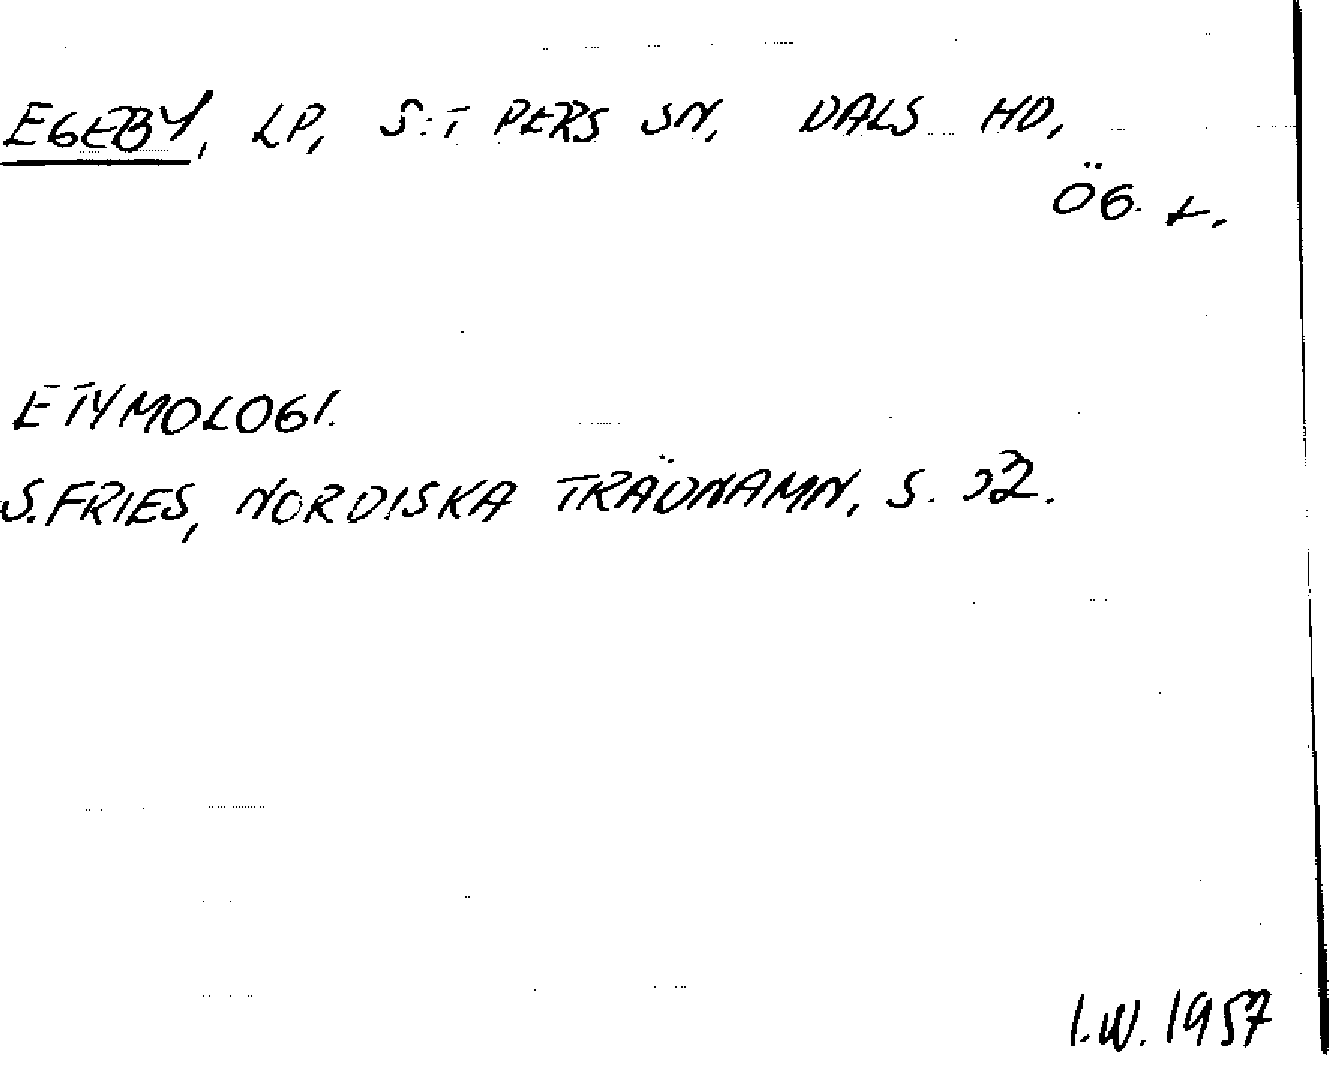 EGEBY, LP, S:T PERS SN, DALS HD,
ÖG. L.
ETYMOLOGI.
S. FRIES, NORDISKA TRÄDNAMN, S.
I.W. 1957